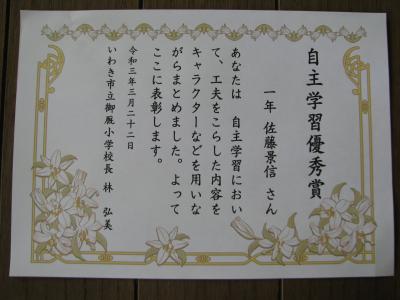 自主学習優秀賞
一年 佐藤景信 さん
あなたは 自主学習におい
て、工夫をこらした内容を
キャラクターなどを用いな
がらまとめました。よって
ここに表彰します。
令和三年三月二十二日
いわき市立御厩小学校長 林 弘美